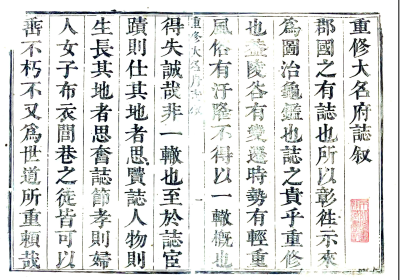 重修大名府誌叙
郡國之有誌也所以彰徃示來
爲圖治龜鑑也誌之貴乎重修
也葢陵谷有變遷時勢有輕重
風俗有汙隆不得以一轍概也
重修大名府誌叙
得失誠哉非一轍也至於誌宦
蹟則仕其地者思賢誌人物則
生長其地者思奮誌節孝則婦
人女子布衣閭巷之徒皆可以
善不朽不又爲世道所重賴哉